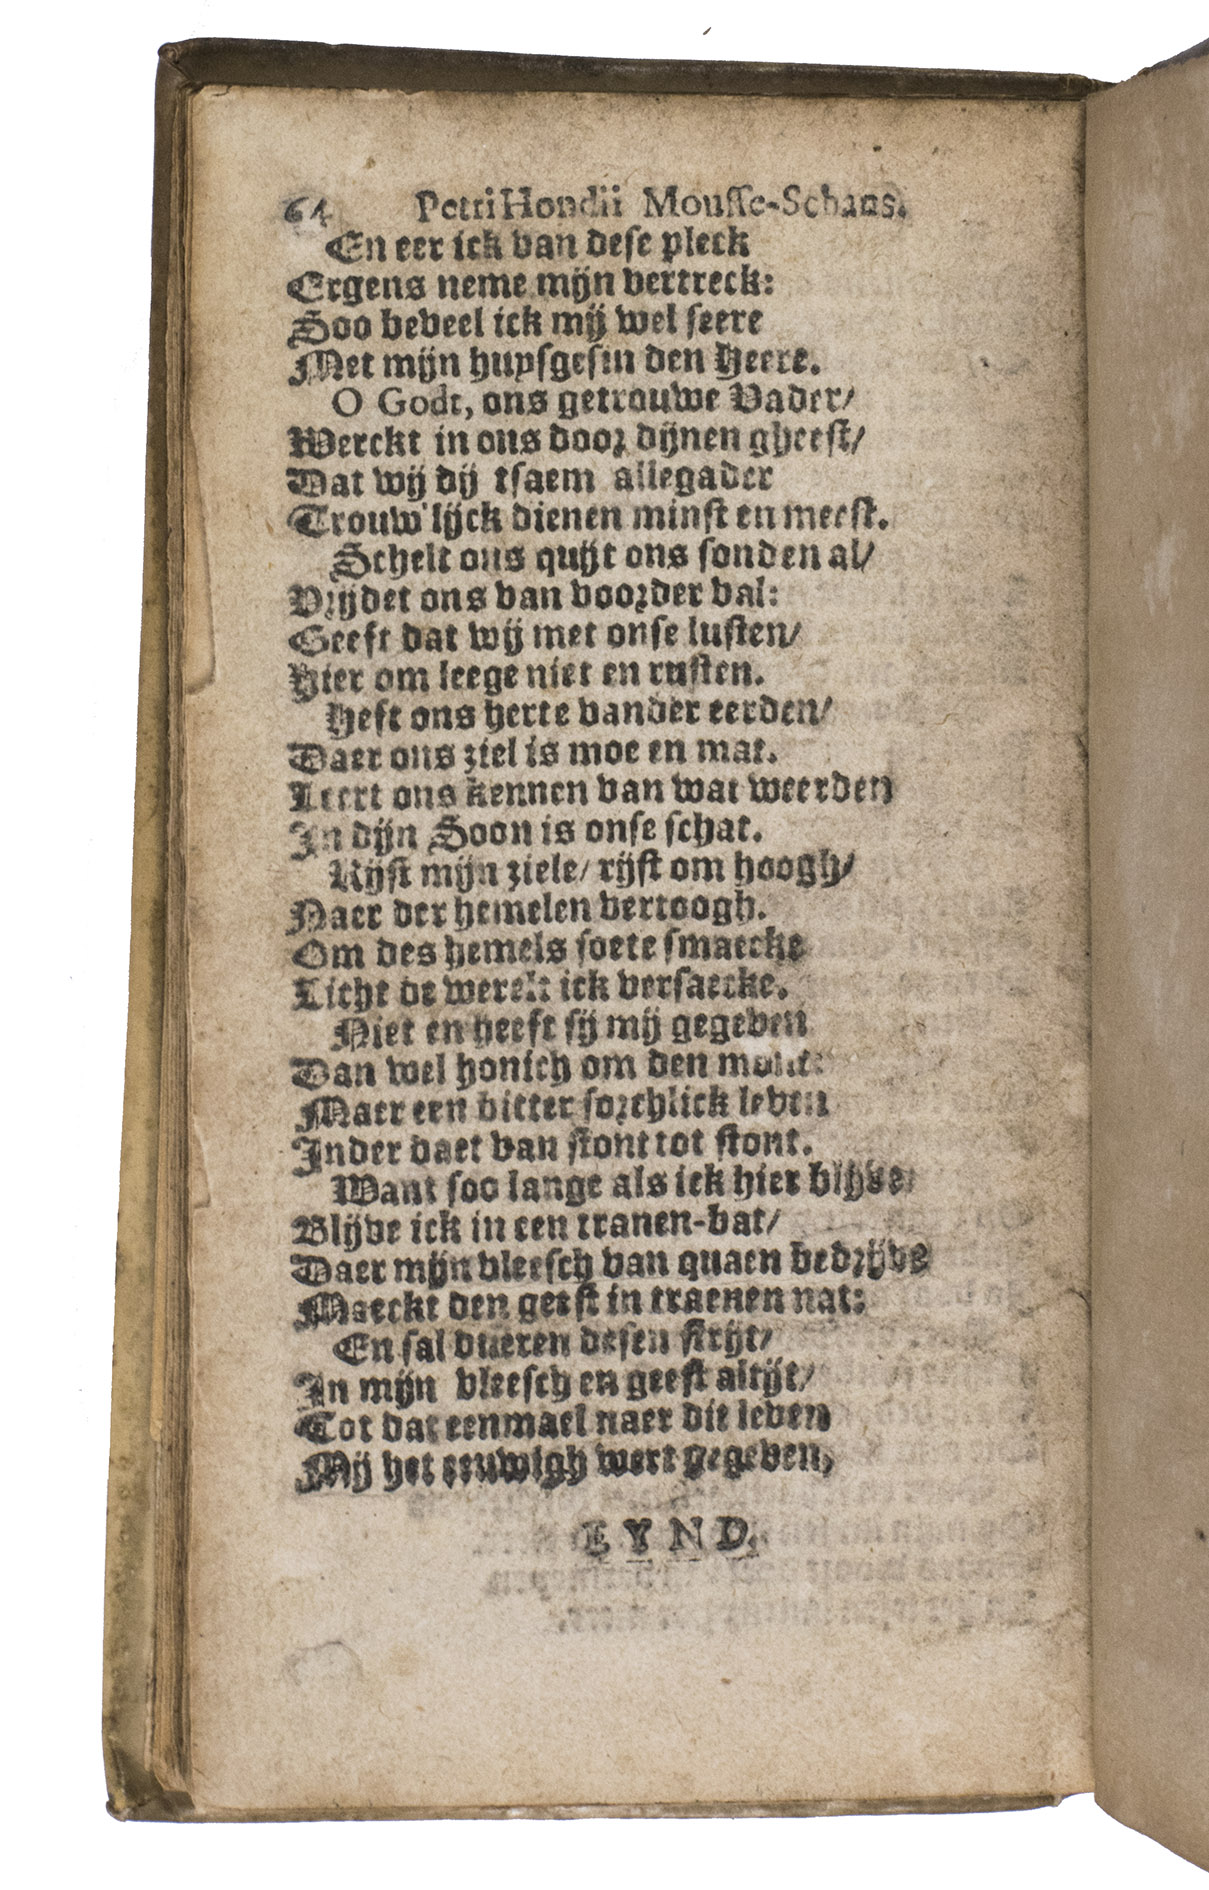 64 Petri Hondii Mousse-Schans.
En eer ick van dese pleck
Ergens neme mijn vertreck:
Soo beveel ick mij wel seere
Met mijn huysgesin den Heere.
O Godt, ons getrouwe Vader/
Werckt in ons door dijnen gheest/
Dat wij dij tsaem allegader
Trouw'lijck dienen minst en meest.
Schelt ons quijt ons sonden al/
Vrijdet ons van voorder val:
Geeft dat wij met onse lusten/
Hier om leege niet en rusten.
Heft ons herte vander eerden/
Daer ons ziel is moe en mat.
Leert ons kennen van wat weerden
In dijn Soon is onse schat.
Rijst mijn ziele/ rijst om hoogh/
Naer der hemelen vertoogh.
Om des hemels soete smaecke
Licht de werelt ick versaecke.
Niet en heeft sij mij gegeven
Dan wel honich om den mont:
Maer een bitter sorchlick leven
Inder daet van stont tot stont.
Want soo lange als ick hier blijve/
Blijve ick in een tranen-vat/
Daer mijn vleesch van quaen bedrijve
Maeckt den geest in traenen nat:
En sal dueren desen strijt/
In mijn vleesch en geest altijt/
Tot dat eenmael naer dit leven
Mij het eeuwigh wert gegeven,
EYND.